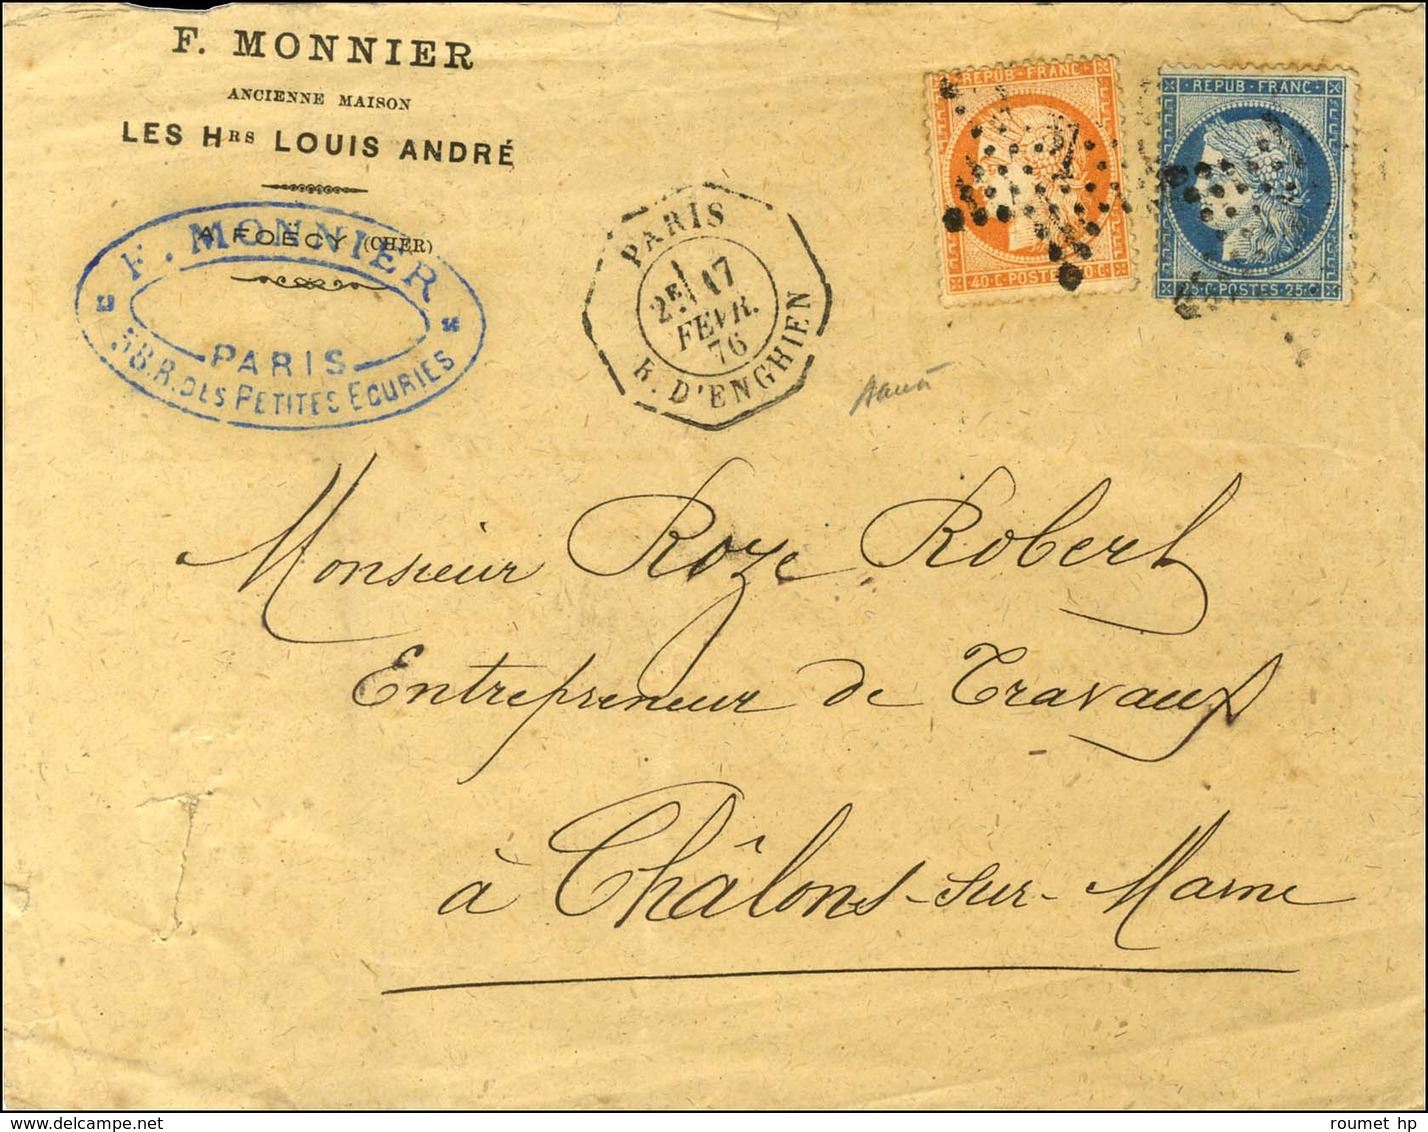 F. MONNIER
ANCIENNE MAISON
LES Hrs LOUIS ANDRÉ
A FOECY (CHER)
F. MONNIER
PARIS
58.R.DES PETITES ECURIES
PARIS
2E 17
FEVR.
76
R. D'ENGHIEN
REPUB·FRANC
40·C·POSTES·40·C
REPUB·FRANC
25·C·POSTES·25·C
Monsieur Roze Robert
Entrepreneur de Travaux
à Châlons-sur-Marne
roumet hp